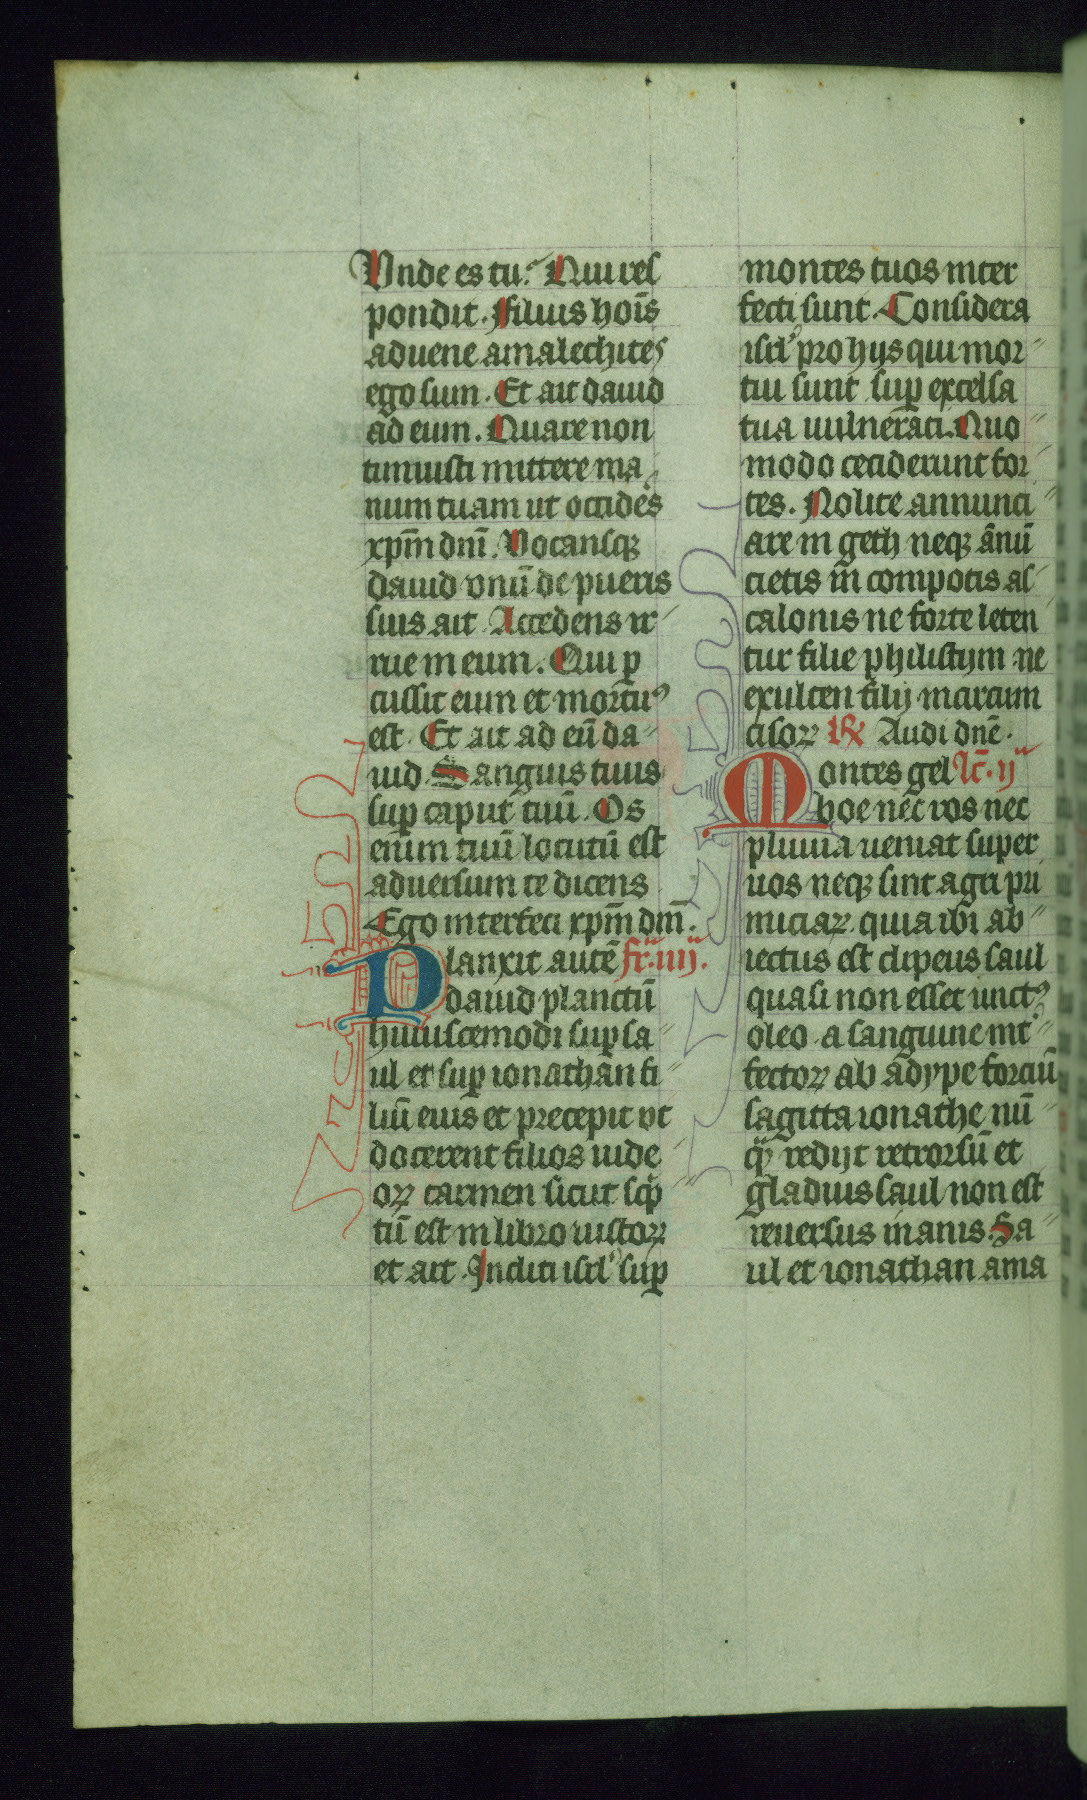 Unde es tu? Qui res
pondit. Filius hoīs
aduene amalechites
ego sum. Et ait dauid
ad eum. Quare non
timuisti mittere ma
num tuam ut occides
xp̄m dn̄i. Uocansqꝫ
dauid vnū de pueris
suis ait Accedens ir
rue in eum. Qui ꝑ
cussit eum et mortuꝰ
est. Et ait ad eū da
uid Sanguis tuus
suꝑ caput tuū. Os
enim tuū locutū est
aduersum te dicens
Ego interfeci xp̄m dn̄i.
Planxit autē fr̄. iiij.
dauid planctū
huiuscemodi suꝑ sa
ul et suꝑ ionathan fi
liū eius et precepit vt
docerent filios iude
oꝝ carmen sicut scͥp
tū est in libro iustoꝝ
et ait. Incliti isrl̓ suꝑ
montes tuos inter
fecti sunt. Considera
isrl̓ pro hijs qui mor
tui sunt suꝑ excelsa
tua uulnerati. Quo
modo ceciderunt for
tes. Nolite annunci
are in geth neqꝫ ānū
cietis in̄ compotis as
calonis ne forte leten
tur filie philistijm ne
exulten filij incircum
cisoꝝ ℟ Audi dn̄e.
Montes gel lc̄. ij
boe nec ros nec
pluuia ueniat super
uos neqꝫ sint agri pri
miciaꝝ quia ibi ab
iectus est clipeus saul
quasi non esset unctꝰ
oleo. a sanguine int̓
fectoꝝ ab adype forciū
sagitta ionathe nū
qͣ redijt retrorsū et
gladius saul non est
reuersus inanis. Sa
ul et ionathan ama